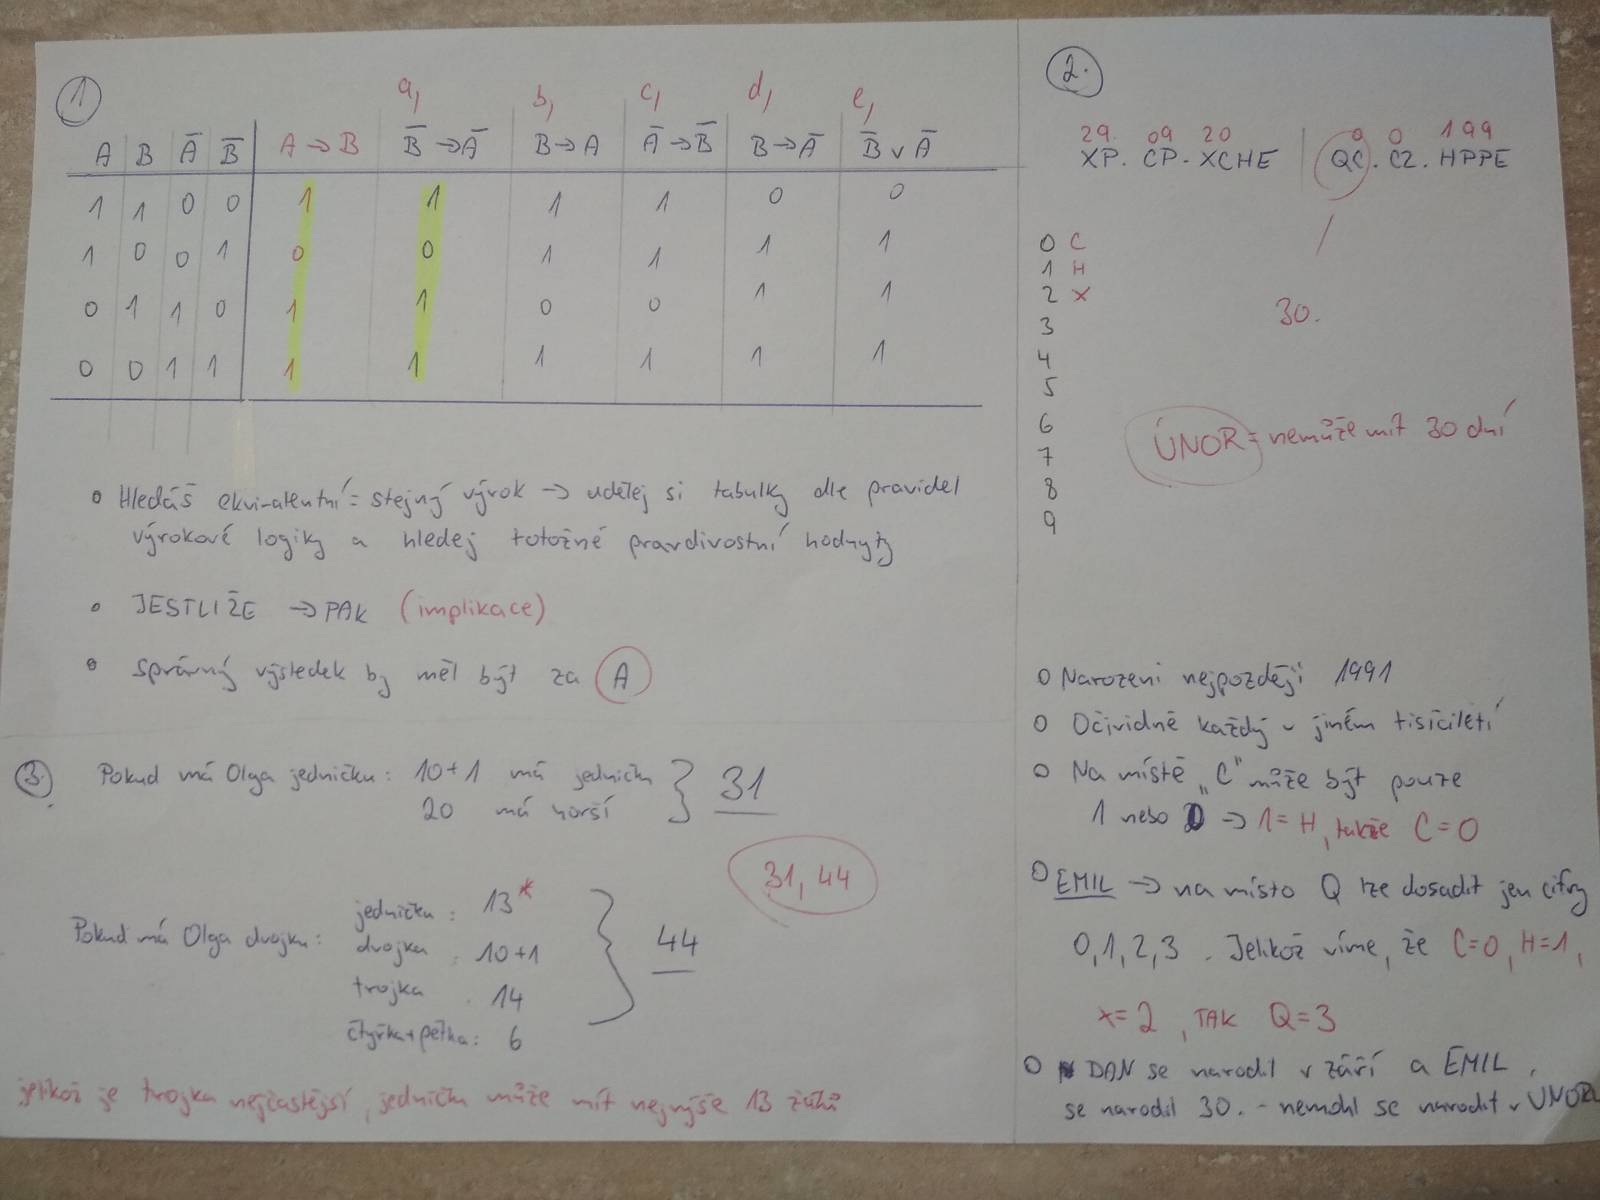 1
a, b, c, d, e,
A B Ā B̄ A → B B̄ → Ā B → A Ā → B̄ B → Ā B̄ ∨ Ā
1 1 0 0 1 1 1 1 0 0
1 0 0 1 0 0 1 1 1 1
0 1 1 0 1 1 0 0 1 1
0 0 1 1 1 1 1 1 1 1
• Hledáš ekvivalentní = stejný výrok → udělej si tabulky dle pravidel
výrokové logiky a hledej totožné pravdivostní hodnoty
• JESTLIŽE → PAK (implikace)
• Správný výsledek by měl být za A
2.
29. 09 20 0 0 199
XP. CP. XCHE QC. CZ. HPPE
0 C
1 H
2 X
3
4
5
6
7
8
9
30.
ÚNOR = nemůže mít 30 dní
O Narození nejpozději 1991
O Očividně každý v jiném tisíciletí
O Na místě "C" může být pouze
1 nebo 0 → 1 = H, takže C = 0
O EMIL → na místo Q lze dosadit jen cifry
0, 1, 2, 3. Jelikož víme, že C=0, H=1,
x= 2, TAK Q = 3
O DAN se narodil v září a EMIL
se narodil 30. - nemohl se narodit v ÚNORU
3.
Pokud má Olga jedničku: 10+1 má jedničku
20 má horší
31
Pokud má Olga dvojku:
jedničku: 13*
dvojka: 10+1
trojka: 14
čtyřka+pětka: 6
44
31, 44
jelikož je trojka nejčastější, jedničku může mít nejvýše 13 žáků